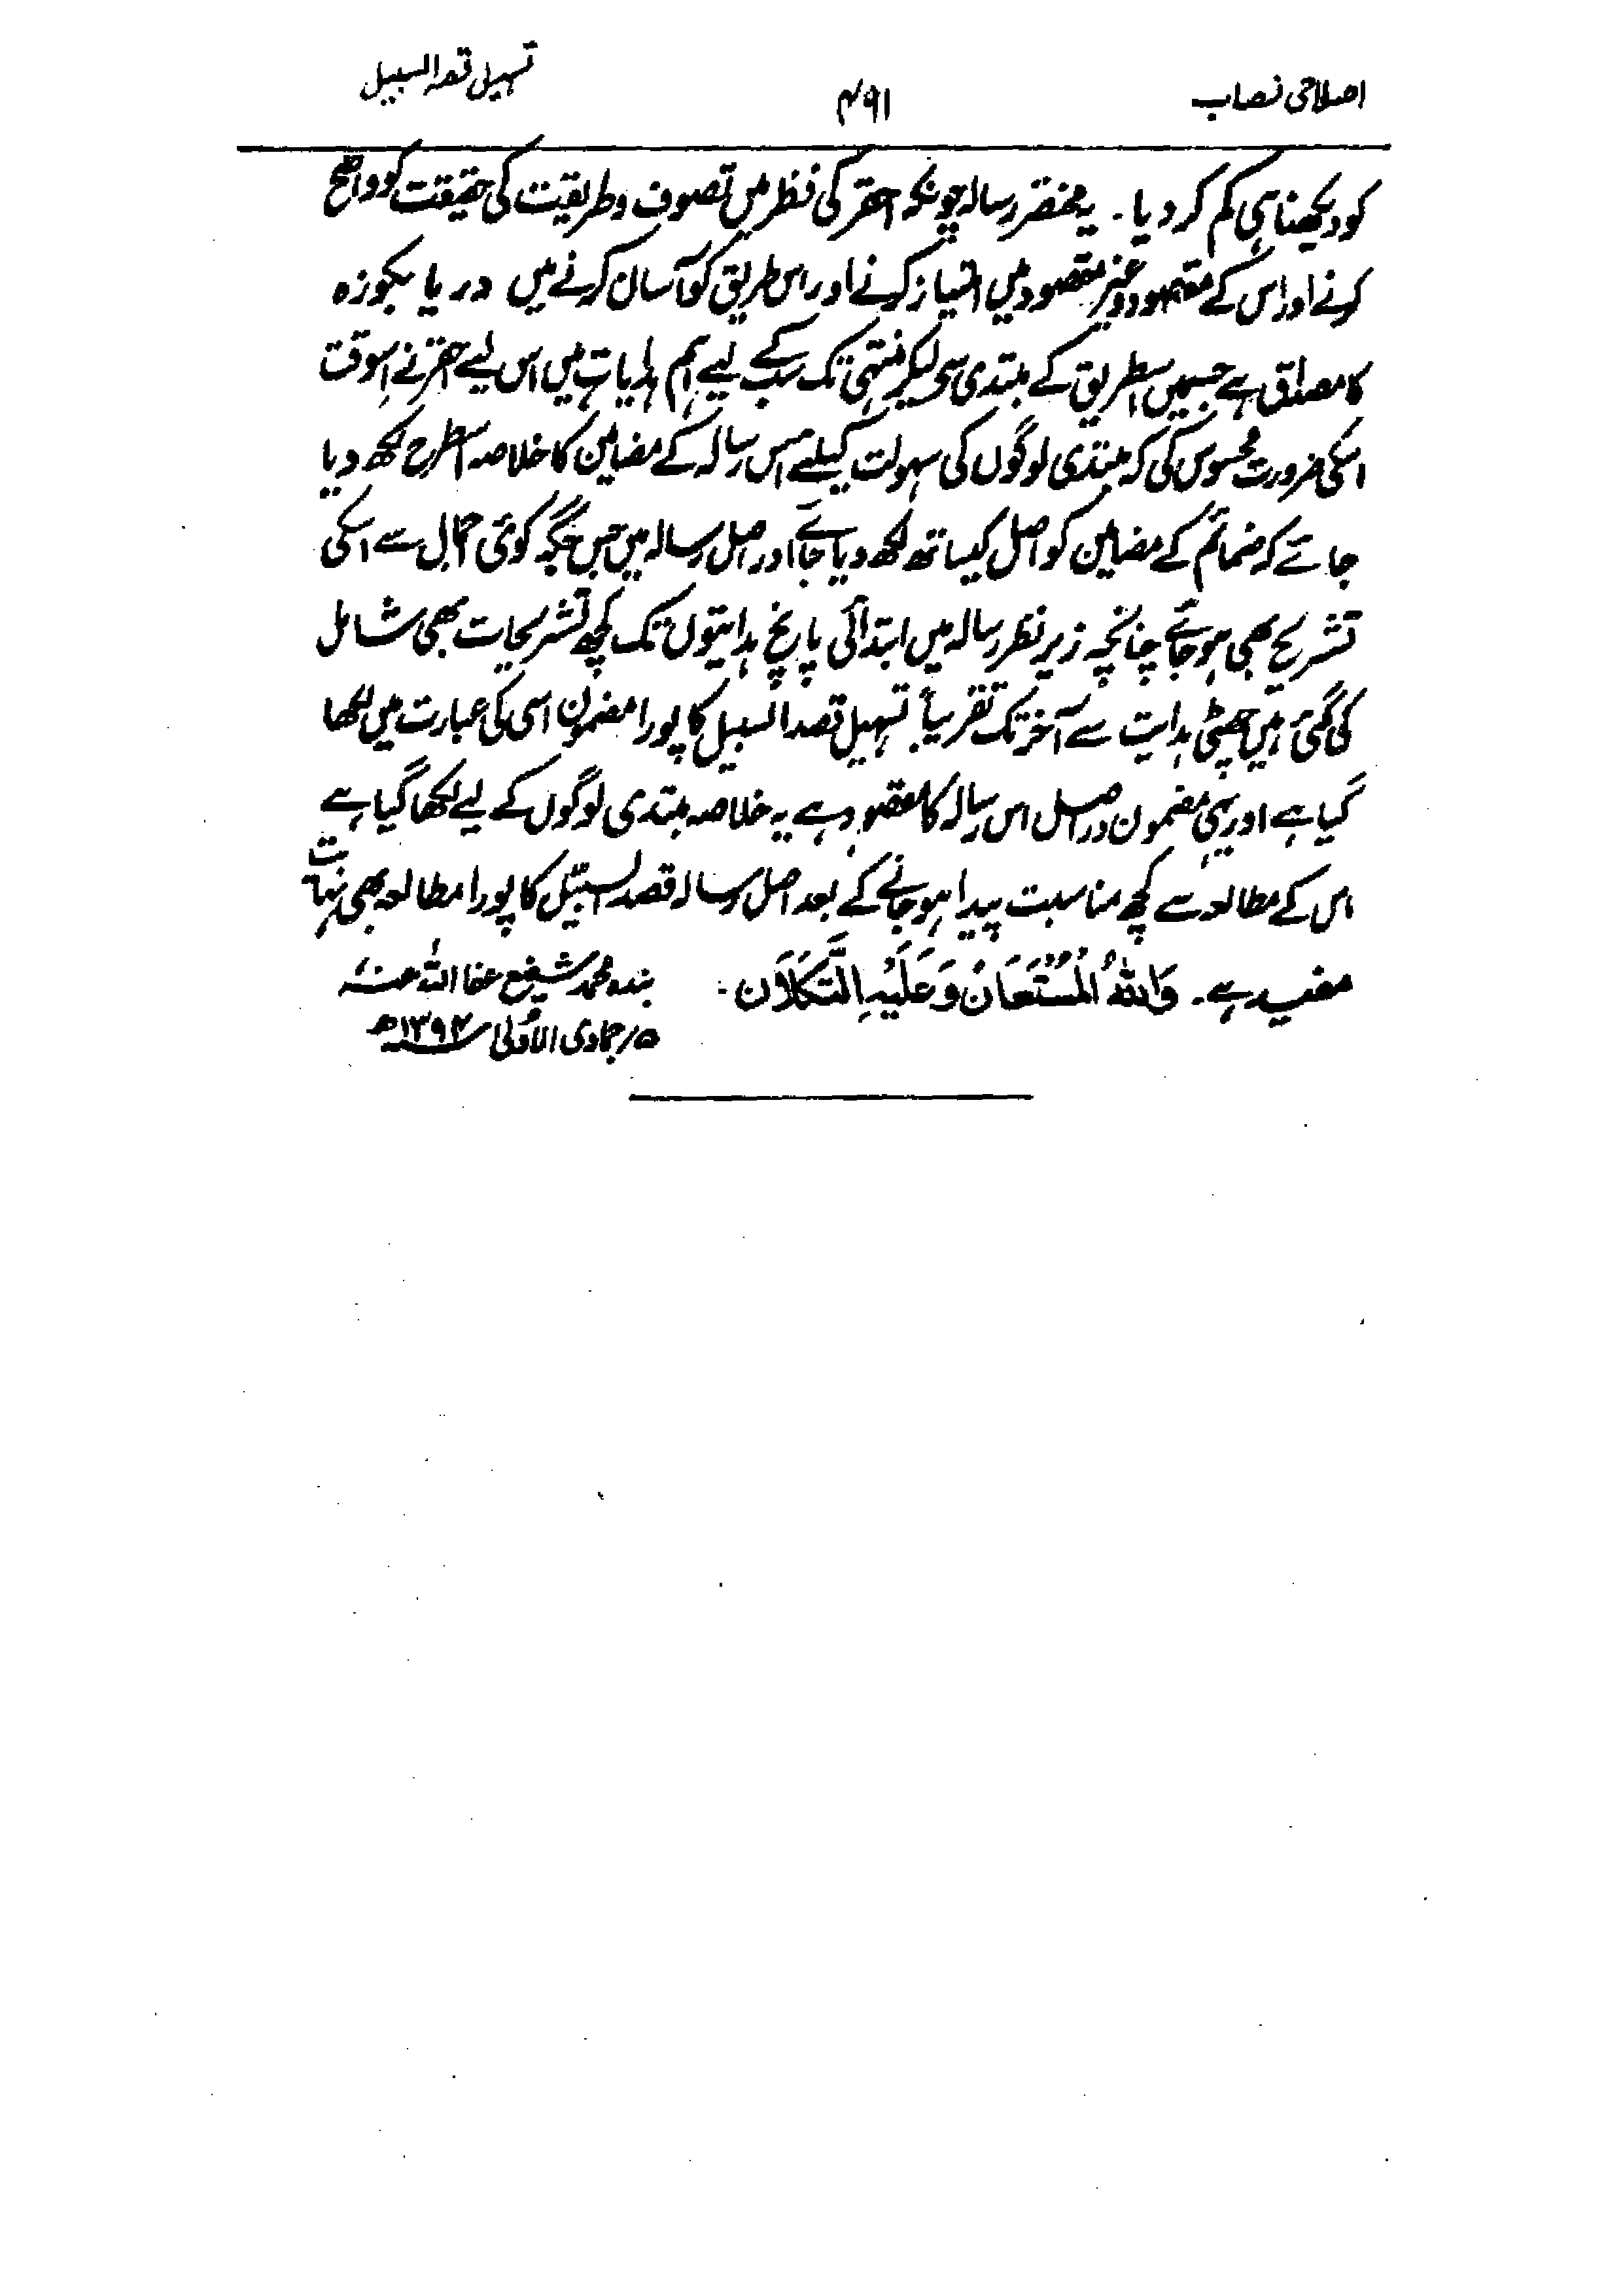 اصلاحی نصاب ۴۹۱ تسہیل قصد السبیل
کو دیکھنا ہی کم کر دیا۔ یہ مختصر رسالہ چونکہ احقر کی نظر میں تصوف و طریقت کی حقیقت کو واضح
کرنے اور اس کے مقصود و غیر مقصود میں امتیاز کرنے اور اس طریق کو آسان کرنے میں دریا بکوزہ
کا مصداق ہے جسمیں اسطریق کے مبتدی سے لیکر منتہی تک سب کے لیے اہم ہدایات ہیں اس لیے احقر نے اسوقت
اسکی ضرورت محسوس کی کہ مبتدی لوگوں کی سہولت کیلئے اس رسالہ کے مضامین کا خلاصہ اسطرح لکھ دیا
جائے کہ ضمائم کے مضامین کو اصل کیساتھ لکھ دیا جائے اور اصل رسالہ میں جس جگہ کوئی اجمال ہے اسکی
تشریح بھی ہو جائے چنانچہ زیر نظر رسالہ میں ابتدائی پانچ ہدایتوں تک کچھ تشریحات بھی شامل
کی گئی ہیں چھٹی ہدایت سے آخر تک تقریباً تسہیل قصد السبیل کا پورا مضمون اسی کی عبارت میں لکھا
گیا ہے اور یہی مضمون دراصل اس رسالہ کا مقصود ہے یہ خلاصہ مبتدی لوگوں کے لیے لکھا گیا ہے
اس کے مطالعہ سے کچھ مناسبت پیدا ہو جانے کے بعد اصل رسالہ قصد السبیل کا پورا مطالعہ بھی نہایت
مفید ہے۔ وَاللّٰهُ الْمُسْتَعَانُ وَعَلَيْهِ التَّكَلَان۔ بندہ محمد شفیع عفا اللہ عنہ
۵؍ جمادی الاُولیٰ ۱۳۹۲ھ